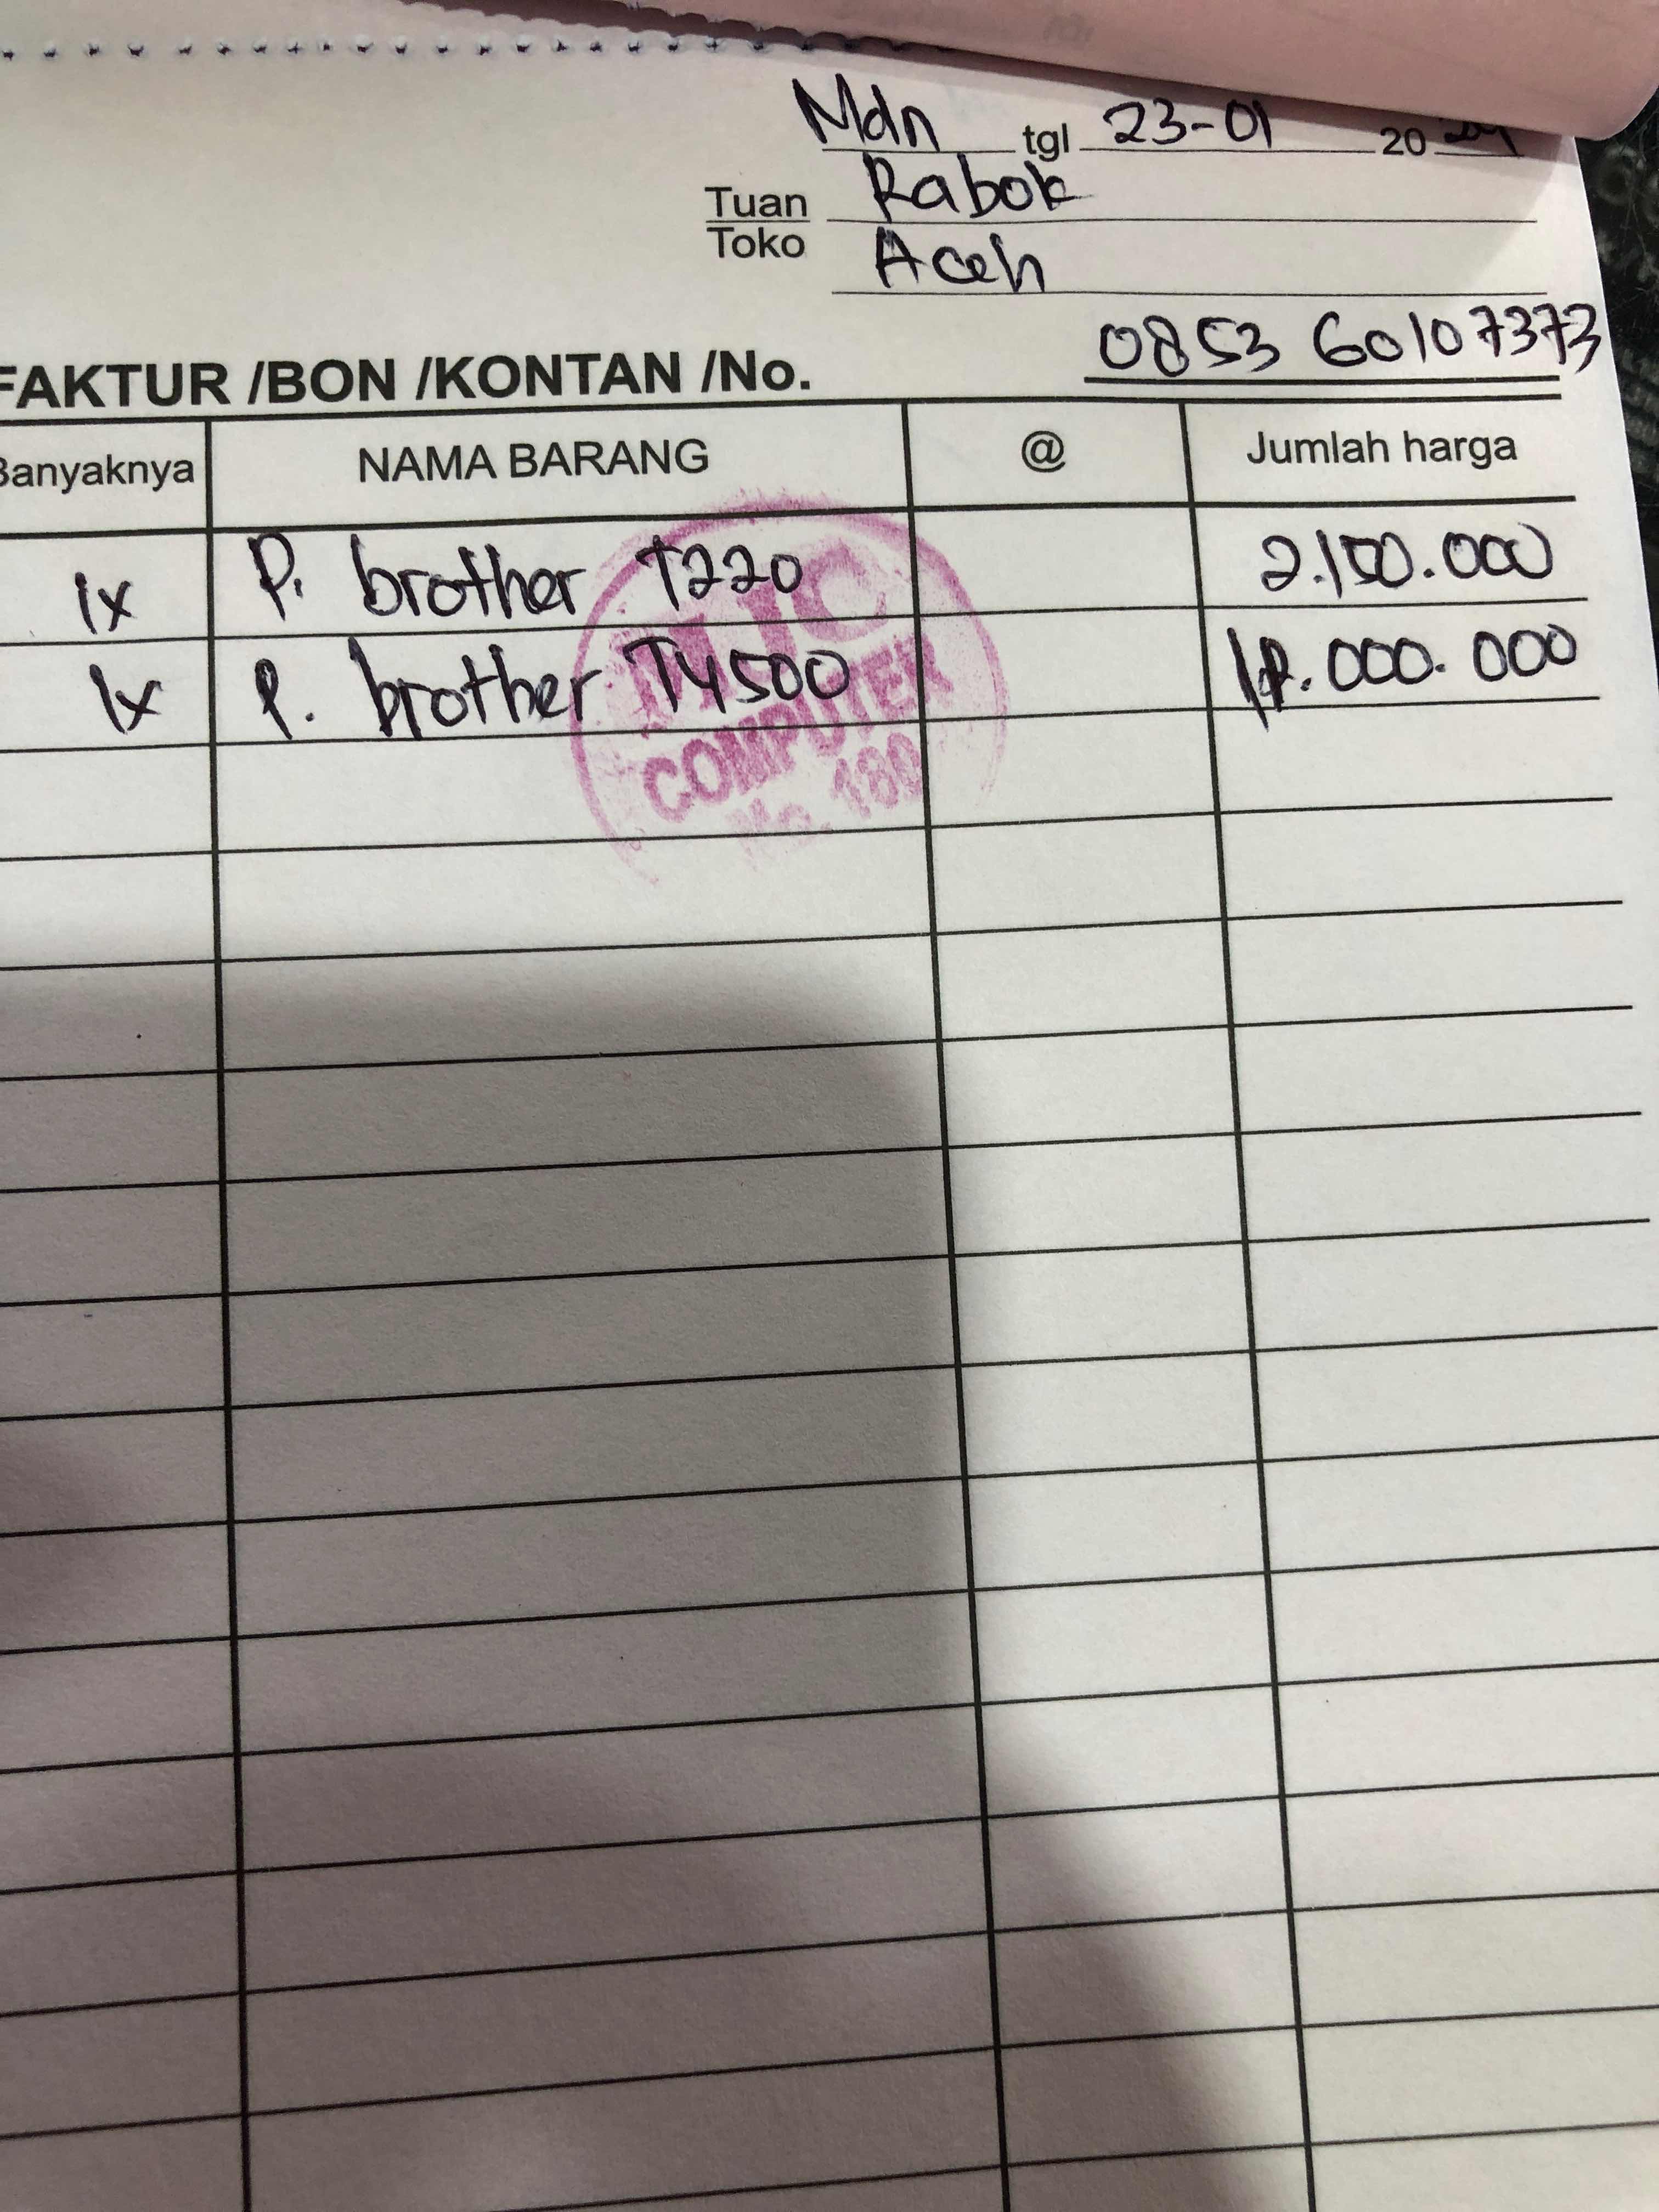 Mdn tgl 23-01 20 24
Tuan Rabok
Toko Aceh
FAKTUR /BON /KONTAN /No. 0853 60107373
Banyaknya NAMA BARANG @ Jumlah harga
1x P. brother T220 2.150.000
1x P. brother T4500 .000.000
COMPUTER
No. 180